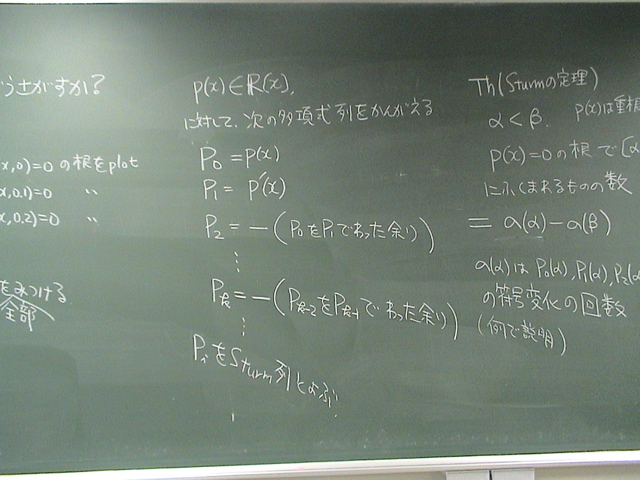 うさがすか?
x,0)=0 の根をplot
x,0.1)=0 〃
x,0.2)=0 〃
をみつける
全部
p(x)∈R(x),
に対して、次の多項式列をかんがえる
P₀ = p(x)
P₁ = p'(x)
P₂ = -(P₀をP₁でわった余り)
⋮
P_k = -(P_{k-2}をP_{k-1}でわった余り)
⋮
PᵢをSturm列とよぶ.
Th(Sturmの定理)
α < β. P(x)は重根
p(x)=0の根で[α
にふくまれるものの数
= a(α)-a(β)
a(α)は P₀(α), P₁(α), P₂(α
の符号変化の回数
(例で説明)